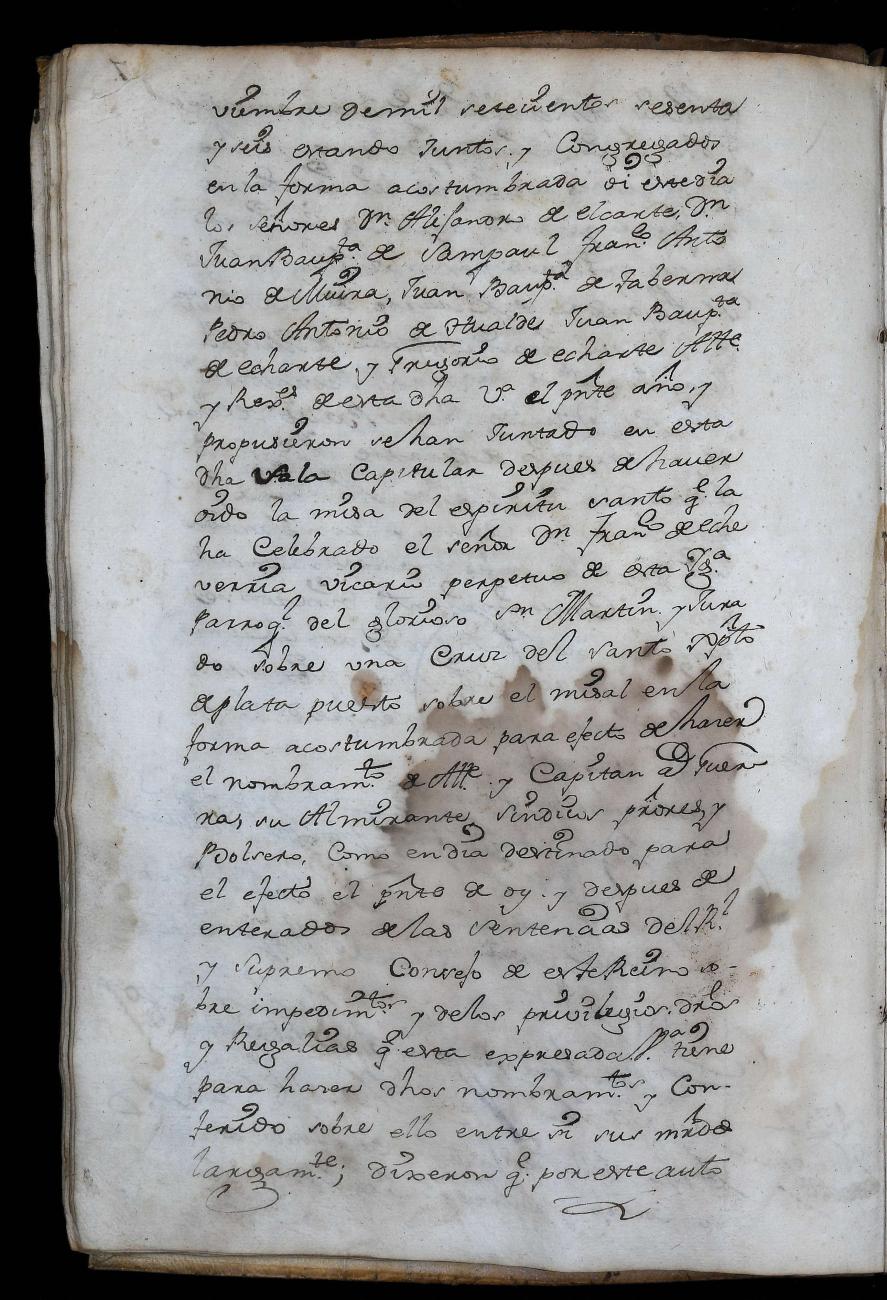 viembre de mil setecientos sesenta
y seis estando Juntos, y Congregados
en la forma acostumbrada oi este dia
los señores Dn. Alejandro de elcarte, Dn
Juan Baupta. de Sampaul franco. Anto
nio de Muira, Juan Baupa. de taberna
Pedro Antonio de Hualde, Juan Baupta
de echarte, y Gregorio de echarte Alle.
y Rexes. de esta dha Va. el pnte año, y
propusieron se han Juntado en esta
dha sala Capitular despues de haver
oido la misa del espiritu santo qe. la
ha Celebrado el señor Dn franco de eche
verria vicario perpetuo de esta Yga.
Parroql. del glorioso sn Martin, y Jura
do sobre una Cruz del santo xpto
de plata puesto sobre el misal en la
forma acostumbrada para efecto de hazer
el nombramto. de Alle. y Capitan a Guer-
ras su Almirante, sindicos priores, y
Bolsero, Como en dia destinado para
el efecto el pnte de oy. y despues de
enterados de las sentencias del Rl.
y Supremo Consejo de este Reino so-
bre impedimtos. y de los privilegios, dros
y Regalias qe. esta expresada Va. tiene
para hazer dhos nombramtos. y Con-
ferido sobre ello entre si sus mrds
largamte.; dixeron qe. por este auto